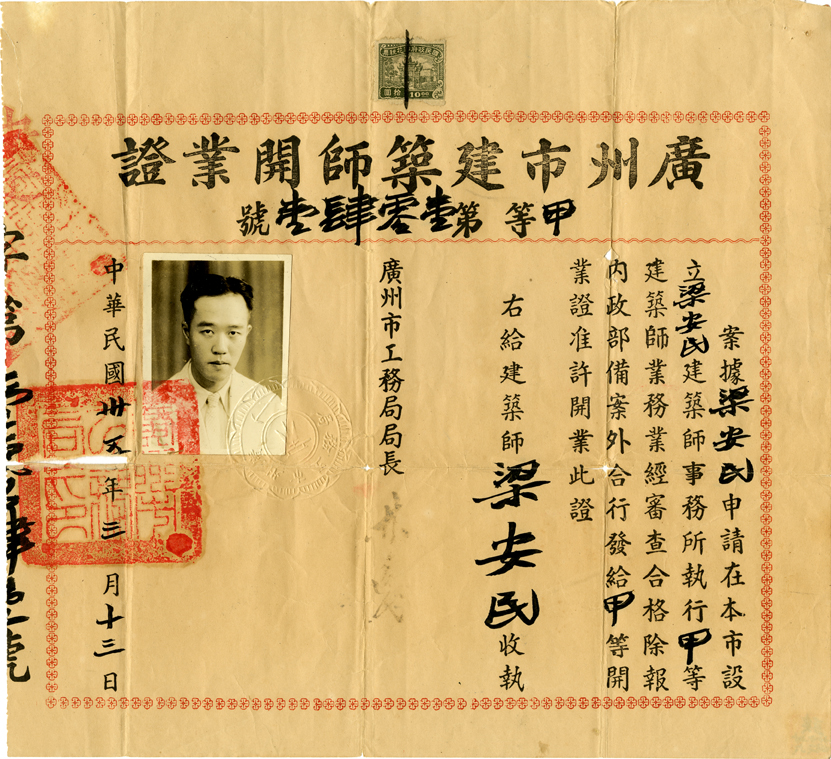 廣州市建築師開業證
甲等第壹零肆壹號
案據梁安民申請在本市設
立梁安民建築師事務所執行甲等
建築師業務業經審查合格除報
內政部備案外合行發給甲等開
業證准許開業此證
右給建築師梁安民收執
廣州市工務局局長
中華民國卅五年三月十三日
拾圓
10.00